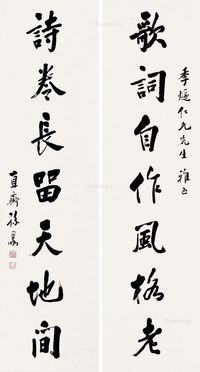 歌詞自作風格老
季煃仁兄先生雅正
詩卷長留天地間
直齋孫晏